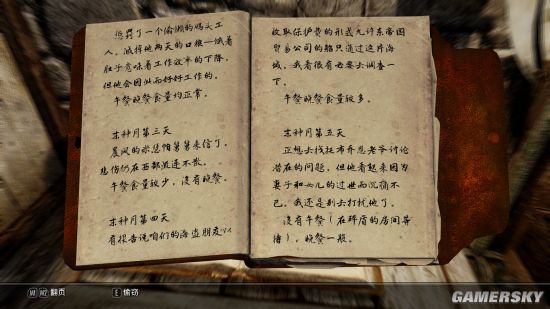 惩罚了一个偷懒的码头工
人，减掉他两天的口粮—饿着
肚子意味着工作效率的下降，
但他会因此而好好工作的。
午餐晚餐食量均正常。
末种月第三天
晨风的求恩帕舅舅来信了，
悲伤仍在西部流连不散。
午餐食量较少，没有晚餐。
末种月第四天
有报告说咱们的海盗朋友以
收取保护费的形式允许东帝国
贸易公司的船只通过这片海
域，我看很有必要去调查一
下。
午餐晚餐食量较多。
末种月第五天
正想去找托布乔恩老爷讨论
潜在的问题，但他看起来因为
妻子和女儿的过世而沉痛不
已，我还是别去打扰他了。
没有午餐（在畔眉的房间等
待），晚餐一般。
翻页
E 偷窃
GAMERSKY